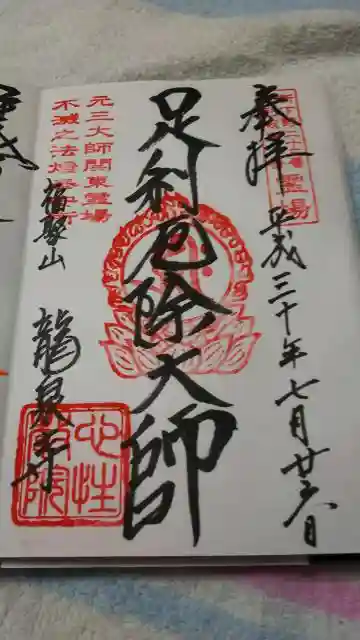 奉拝
霊場
平成三十年七月廿六日
足利厄除大師
元三大師関東霊場
不滅之法燈
福聚山
龍泉寺
心性